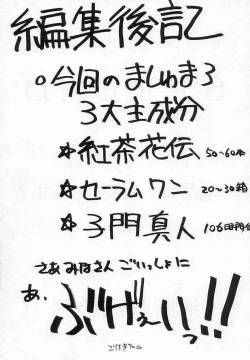 編集後記
○今回のましゅまろ
3大主成分
☆紅茶花伝 50~60本
☆セーラムワン 20~30箱
☆子門真人 106曲
さあみなさんごいっしょに
あ、
ぶげぇいっ!!